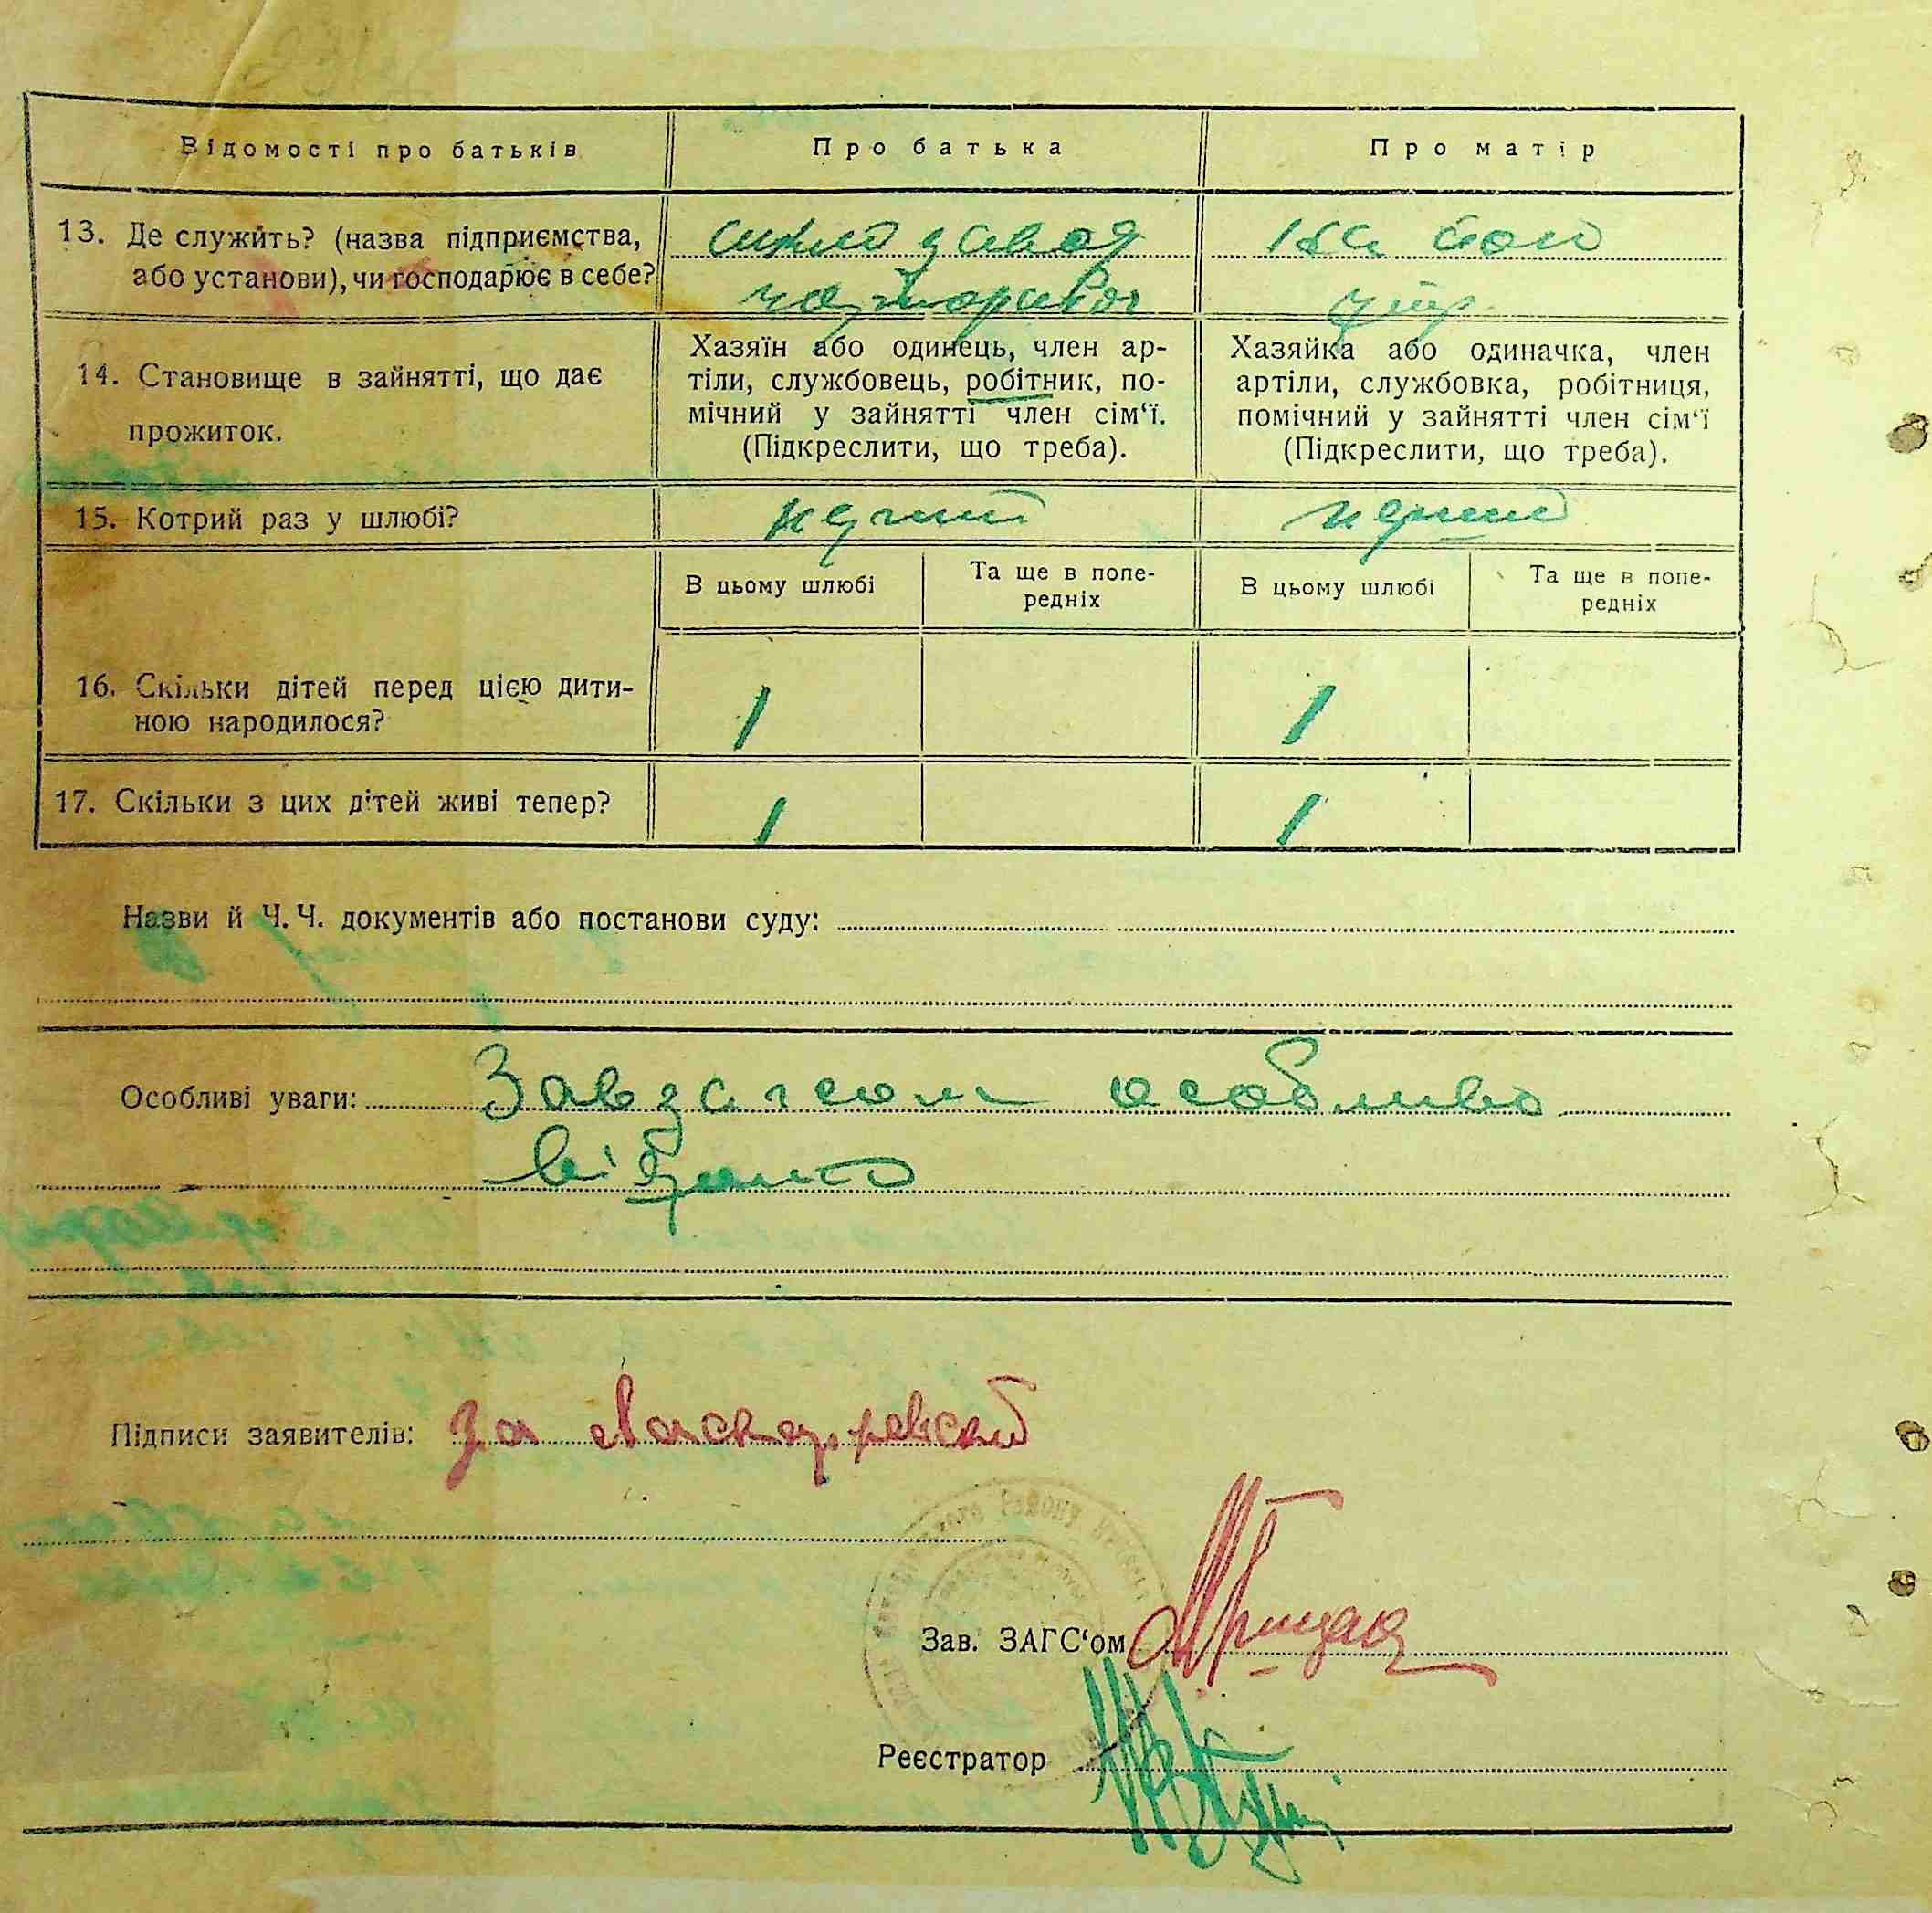 Відомості про батьків
Про батька
Про матір
13. Де служить? (назва підприємства,
або установи), чи господарює в себе?
14. Становище в зайнятті, що дає
прожиток.
Хазяїн або одинець, член ар-
тіли, службовець, робітник, по-
мічний у зайнятті член сім‘ї.
(Підкреслити, що треба).
Хазяйка або одиначка, член
артіли, службовка, робітниця,
помічний у зайнятті член сім‘ї
(Підкреслити, що треба).
15. Котрий раз у шлюбі?
перший
перший
В цьому шлюбі
Та ще в попе-
редніх
В цьому шлюбі
Та ще в попе-
редніх
16. Скільки дітей перед цією дити-
ною народилося?
1
1
17. Скільки з цих дітей живі тепер?
1
1
Назви й Ч. Ч. документів або постанови суду:
Особливі уваги: Завзагсом особливо
відомо
Підписи заявителів: за
Зав. ЗАГС‘ом
Реєстратор